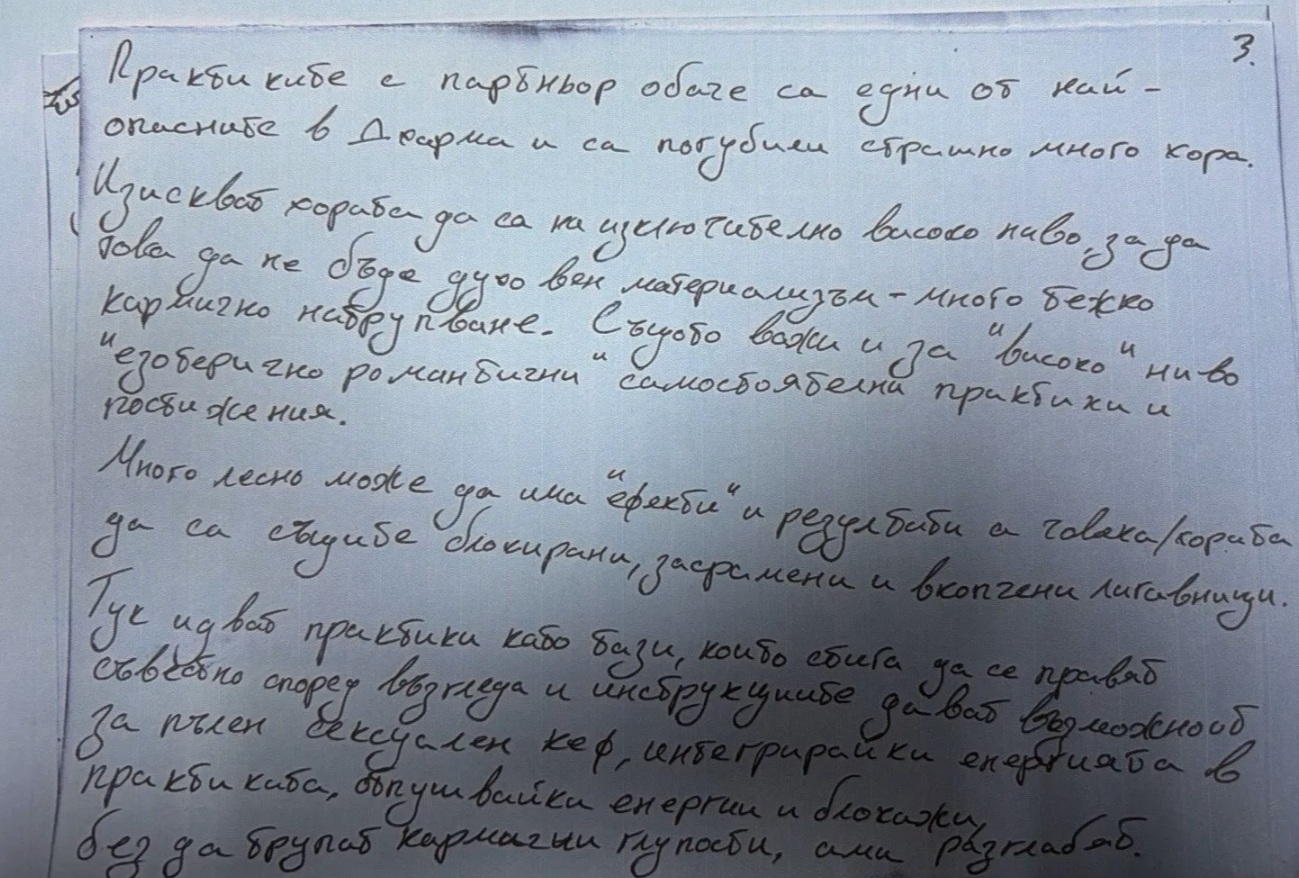 3.
Практиките с партньор обаче са едни от най-
опасните в Дхарма и са погубили страшно много хора.
Изискват хората да са на изключително високо ниво, за да
това да не бъде духовен материализъм - много тежко
кармично натрупване. Същото важи и за "високо" ниво
"езотерично романтични" самостоятелни практики и
постижения.
Много лесно може да има "ефекти" и резултати а човека/хората
да са същите блокирани, засрамени и вкопчени лигавници.
Тук идват практики като тази, които стига да се правят
съвестно според възгледа и инструкциите дават възможност
за пълен сексуален кеф, интегрирайки енергията в
практиката, отпушвайки енергии и блокажи,
без да трупат кармични глупости, ами разглабят.